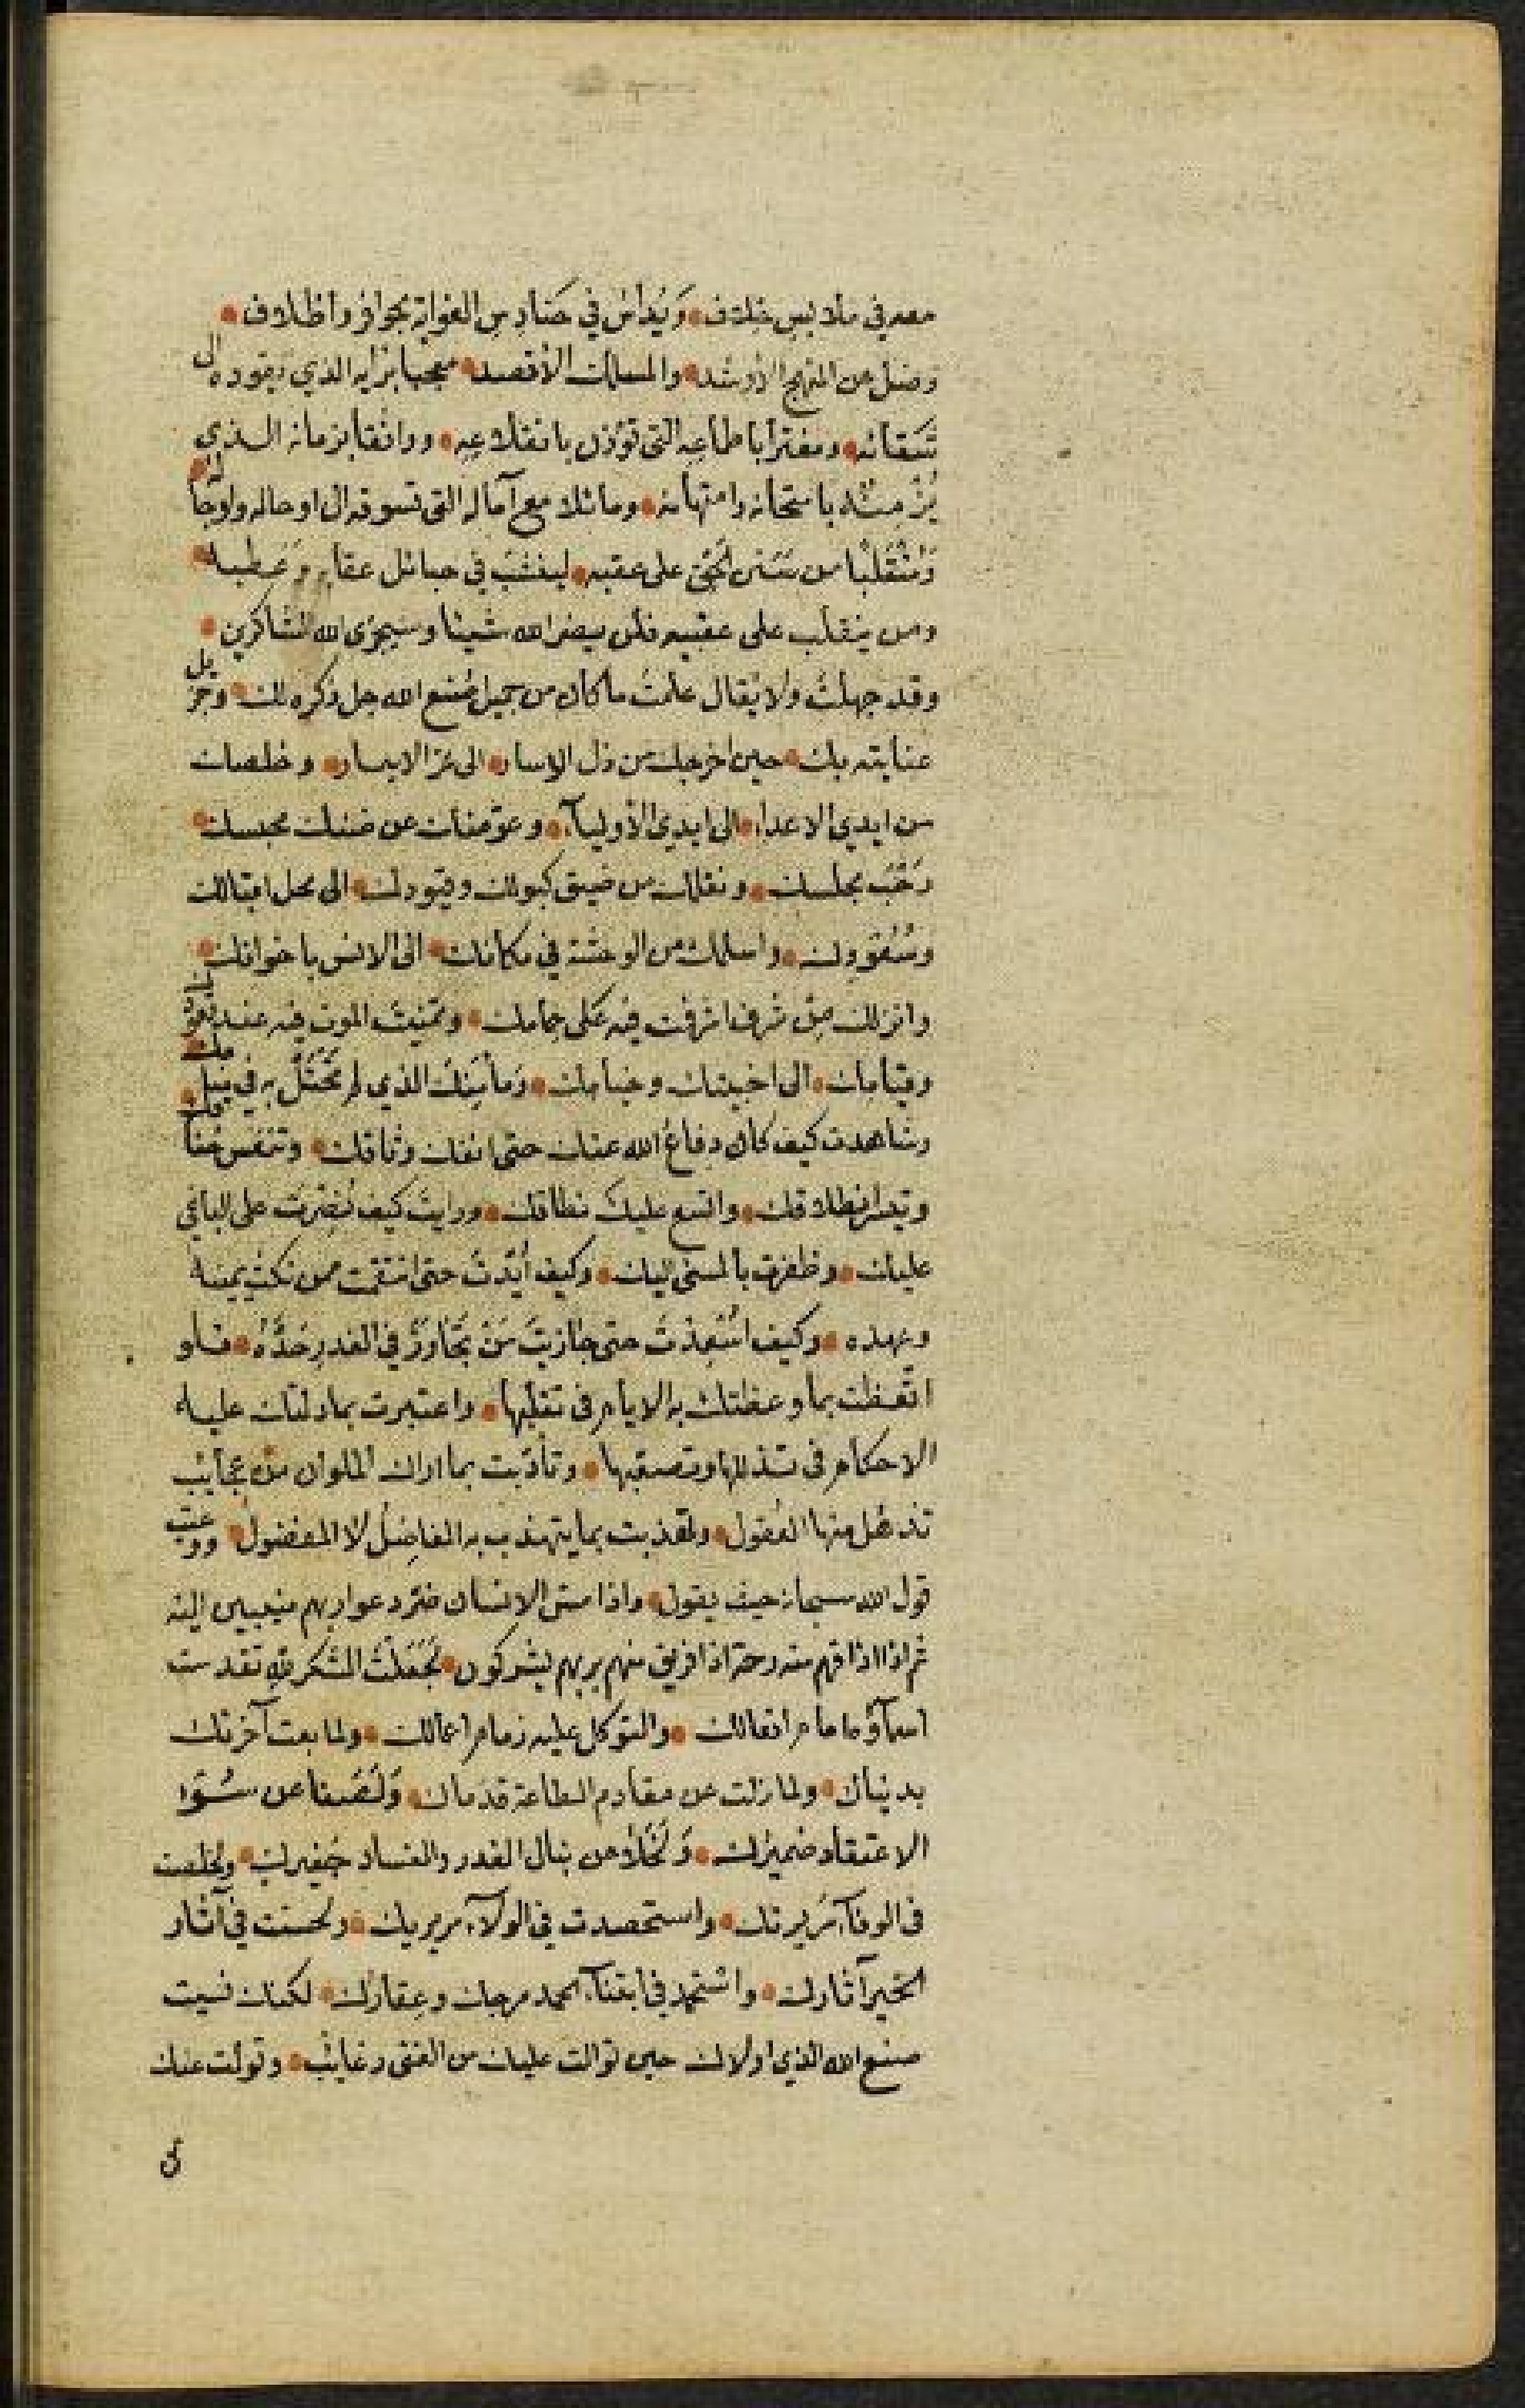 معه في ملابس خلاف • ويداس في حنادس الغواية بحوافر واظلاف •
وضل عن المنهج الارشد • والمسلك الاقصد • معجبا برايه الذي يقوده الى
شقائه • ومغترا باطماعه التي تؤذن بانقلاعه • وواثقا بزمانه الذي
يرصده بامتحانه وامتهانه • ومائلا مع آماله التي تسوقه الى اوحاله واوجاله •
ومنقلبا من سنن الحق على عقبه • لينشب في حبائل عقابه وعطبه •
ومن ينقلب على عقبيه فلن يضر الله شيئا وسيجزى الله الشاكرين •
وقد جهلت ولا يقال علمت ما كان من جميل صنع الله جل ذكره لك • وجزيل
عنايته بك • حين اخرجك من ذل الاسار • الى عز الايسار • وخلصك
من ايدي الاعداء • الى ايدي الأوليآء • وعوضك عن ضنك محبسك •
رحب مجلسك • ونقلك من ضيق كبولك وقيودك • الى محل اقبالك
وسعودك • واسلمك من الوحشة في مكانك • الى الانس باخوانك •
وانزلك من شرف اشرفت فيه على حمامك • وتمنيت الموت فيه عند
وقيامك • الى اخبيتك وخيامك • ومأمنك الذي لم تحتل به في
وشاهدت كيف كان دفاع الله عنك حتى انفك وثاقك • وتنفس خناقك •
وتيسر انطلاقك • واتسع عليك نطاقك • ورايت كيف نصرت على الباغي
عليك • وظفرت بالمسئ اليك • وكيف أيدت حتى انتقمت ممن نكث يمينه
وعهده • وكيف حتى جازيت من تجاوز في الغدر حده • فلو
اتعظت بما وعظتك به الايام في تقلبها • واعتبرت بما دلتك عليه
الاحكام في تذللها وتصعبها • وتأدبت بما اراك الملوان من عجائب
تذهل منها العقول • وتهذبت بما يتهذب به الفاضل لا المفضول • ووعيت
قول الله سبحانه حيث يقول • واذا مس الانسان ضر دعوا ربهم منيبين اليه
ثم اذا اذاقهم منه رحمة اذا فريق منهم بربهم يشركون • لجعلت الشكر لله تقدست
اسمآؤه امام افعالك • والتوكل عليه زمام اعمالك • ولما بعت آخرتك
بدنياك • ولما زلت عن مقادم الطاعة قدماك • ولصفا عن سوء
الاعتقاد ضميرك • ولخلا من نبال الغدر والفساد جفيرك • ولخلصت
في الوفآء سريرتك • واستحصدت في الولآء مريرتك • ولحسنت في آثار
الخير آثارك • واستمجد في ابتنآء الحمد مرخك وعفارك • لكنك نسيت
صنع الله الذي اولاك حين توالت عليك من الغنى رغائب • وتولت عنك